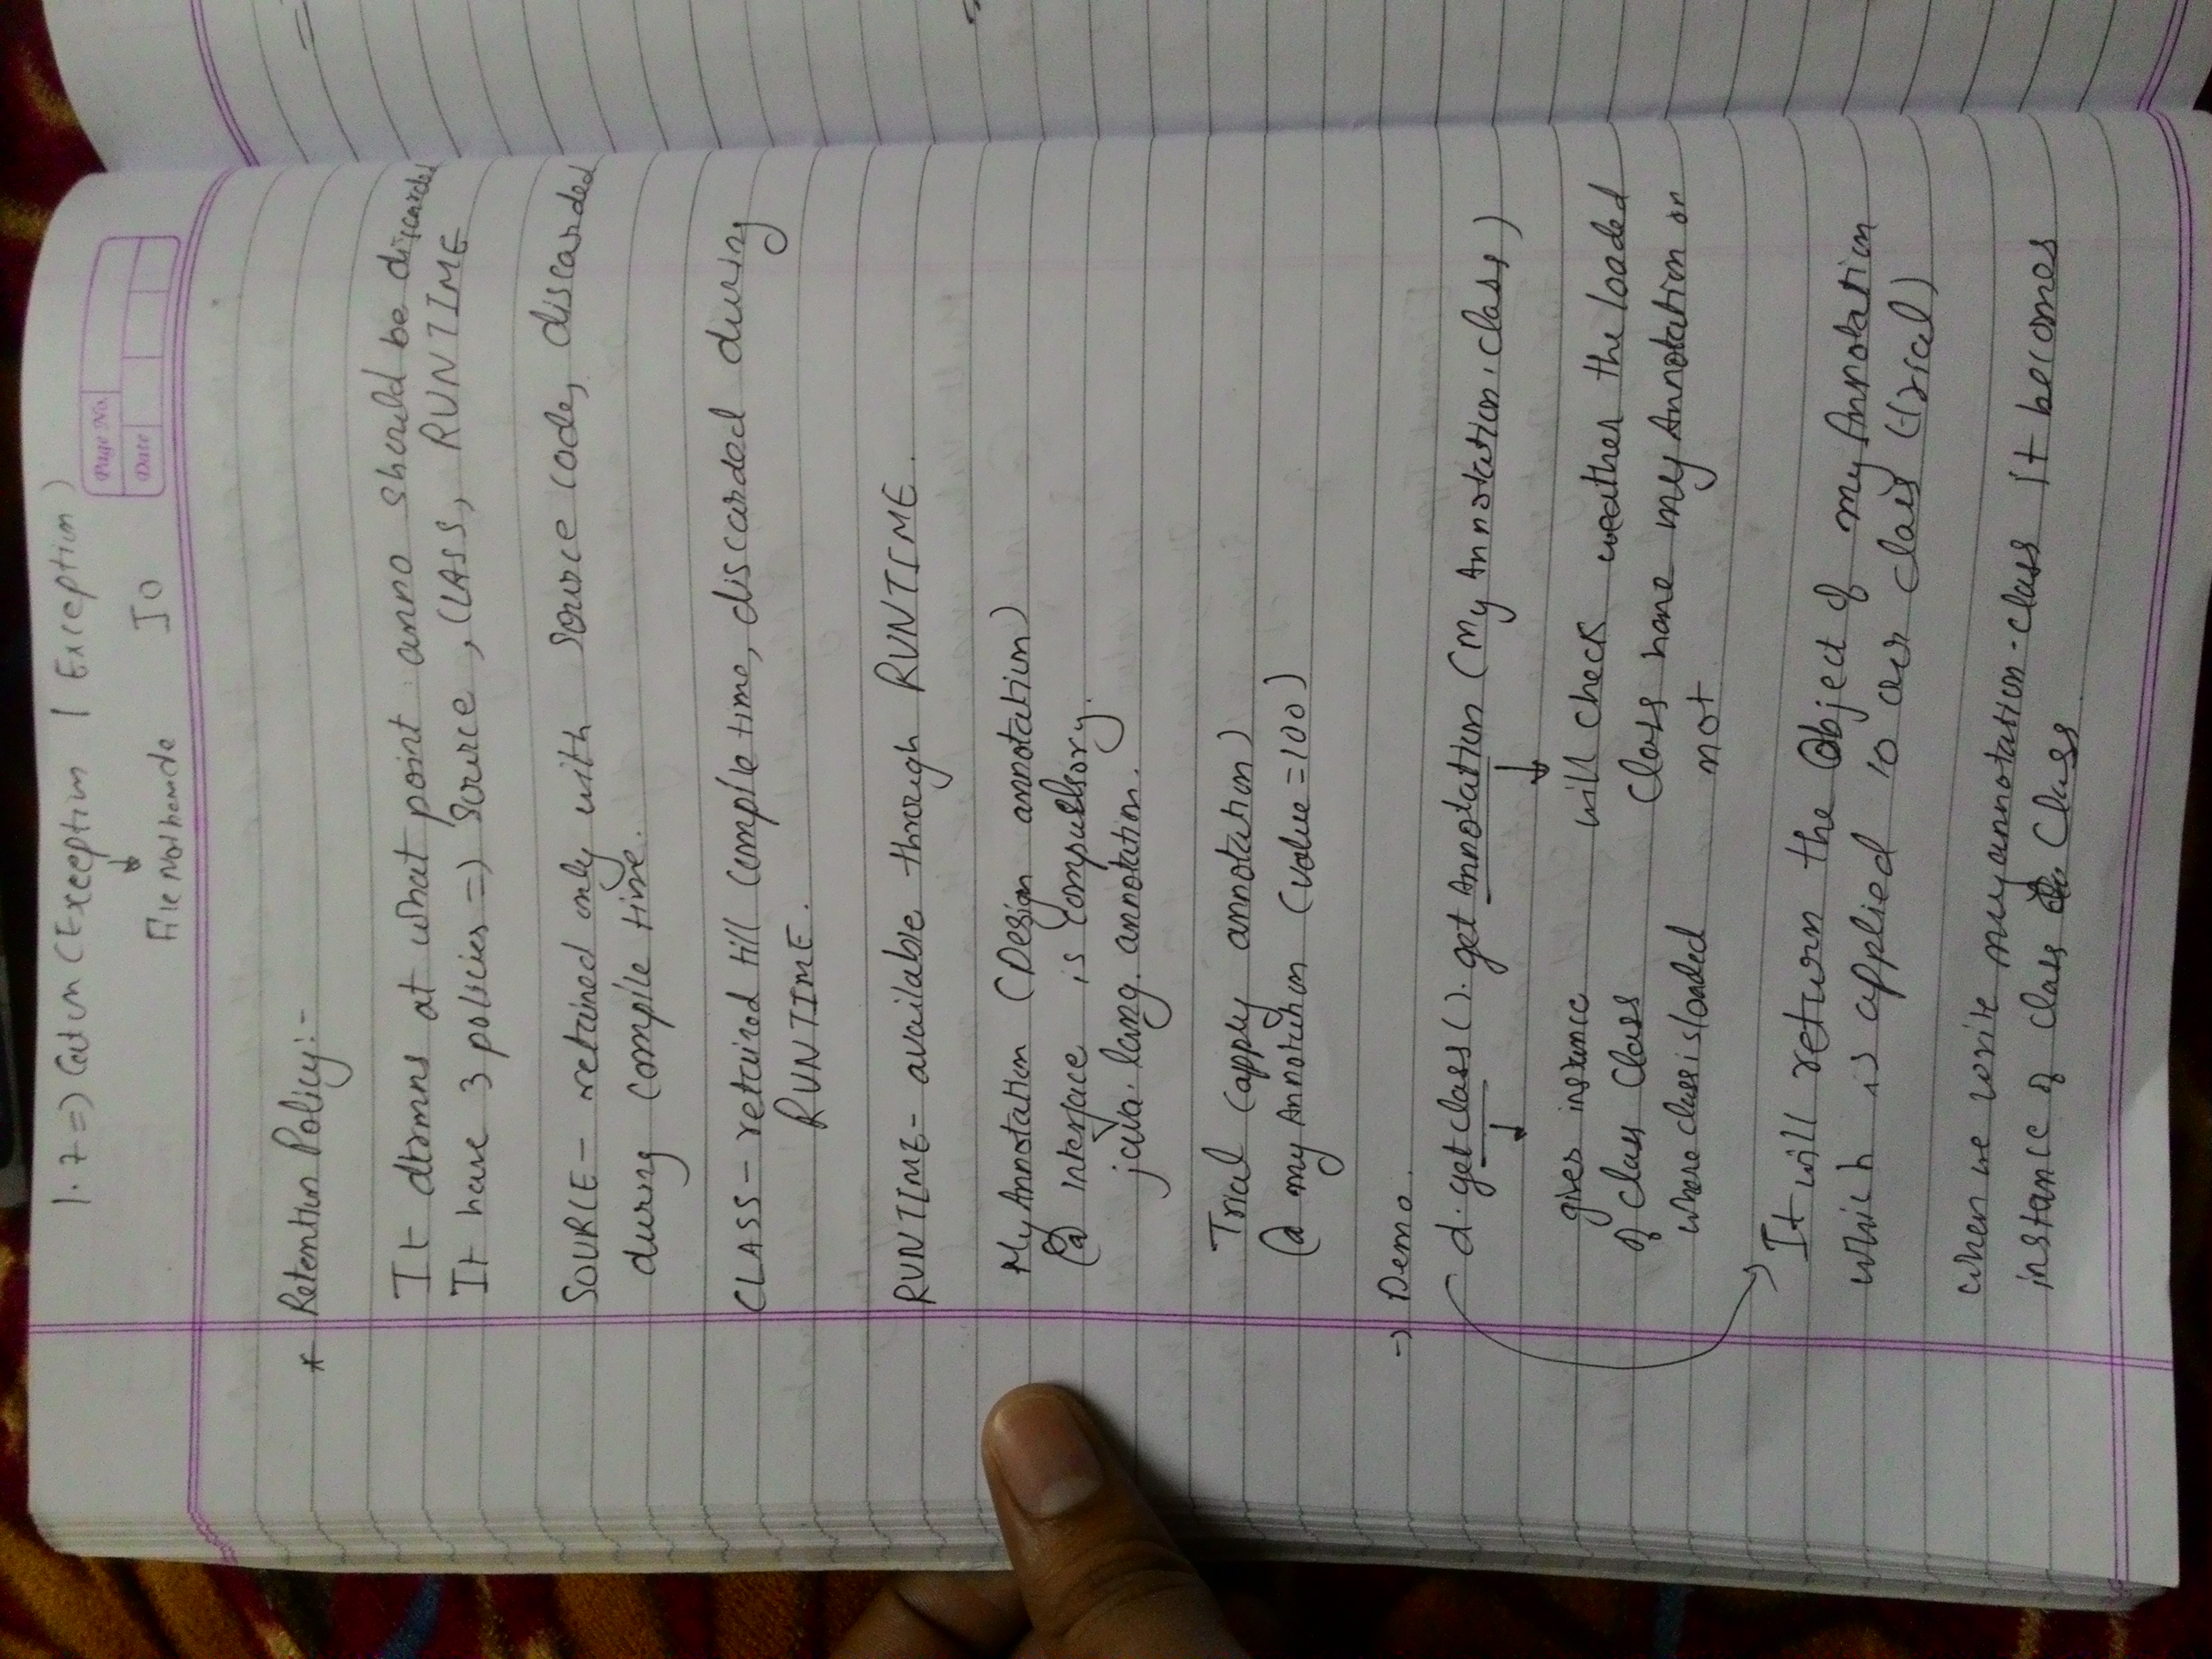 1.7 => Catch (Exception | Exception)
Page No.
Date
↓
File Not IO
* Retention Policy:-
It dtrmns at what point anno should be discarded
It have 3 policies => Source, CLASS, RUNTIME
SOURCE - retained only with source code, discarded
during compile time.
CLASS - retained till compile time, discarded during
RUNTIME.
RUNTIME - available through RUNTIME.
My Annotation (Design annotation)
@ interface is compullsory.
java.lang.annotation.
Trial (apply annotation)
@ my Annotation (value=100)
-> Demo.
d.getclass().get Annotation (My Annotation.class)
↓ ↓
gives instance will check weather the loaded
of class Class class have my Annotation or
where class is loaded not
It will return the Object of my Annotation
which is applied to our class (trial)
when we write myannotation.class it becomes
instance of class Class